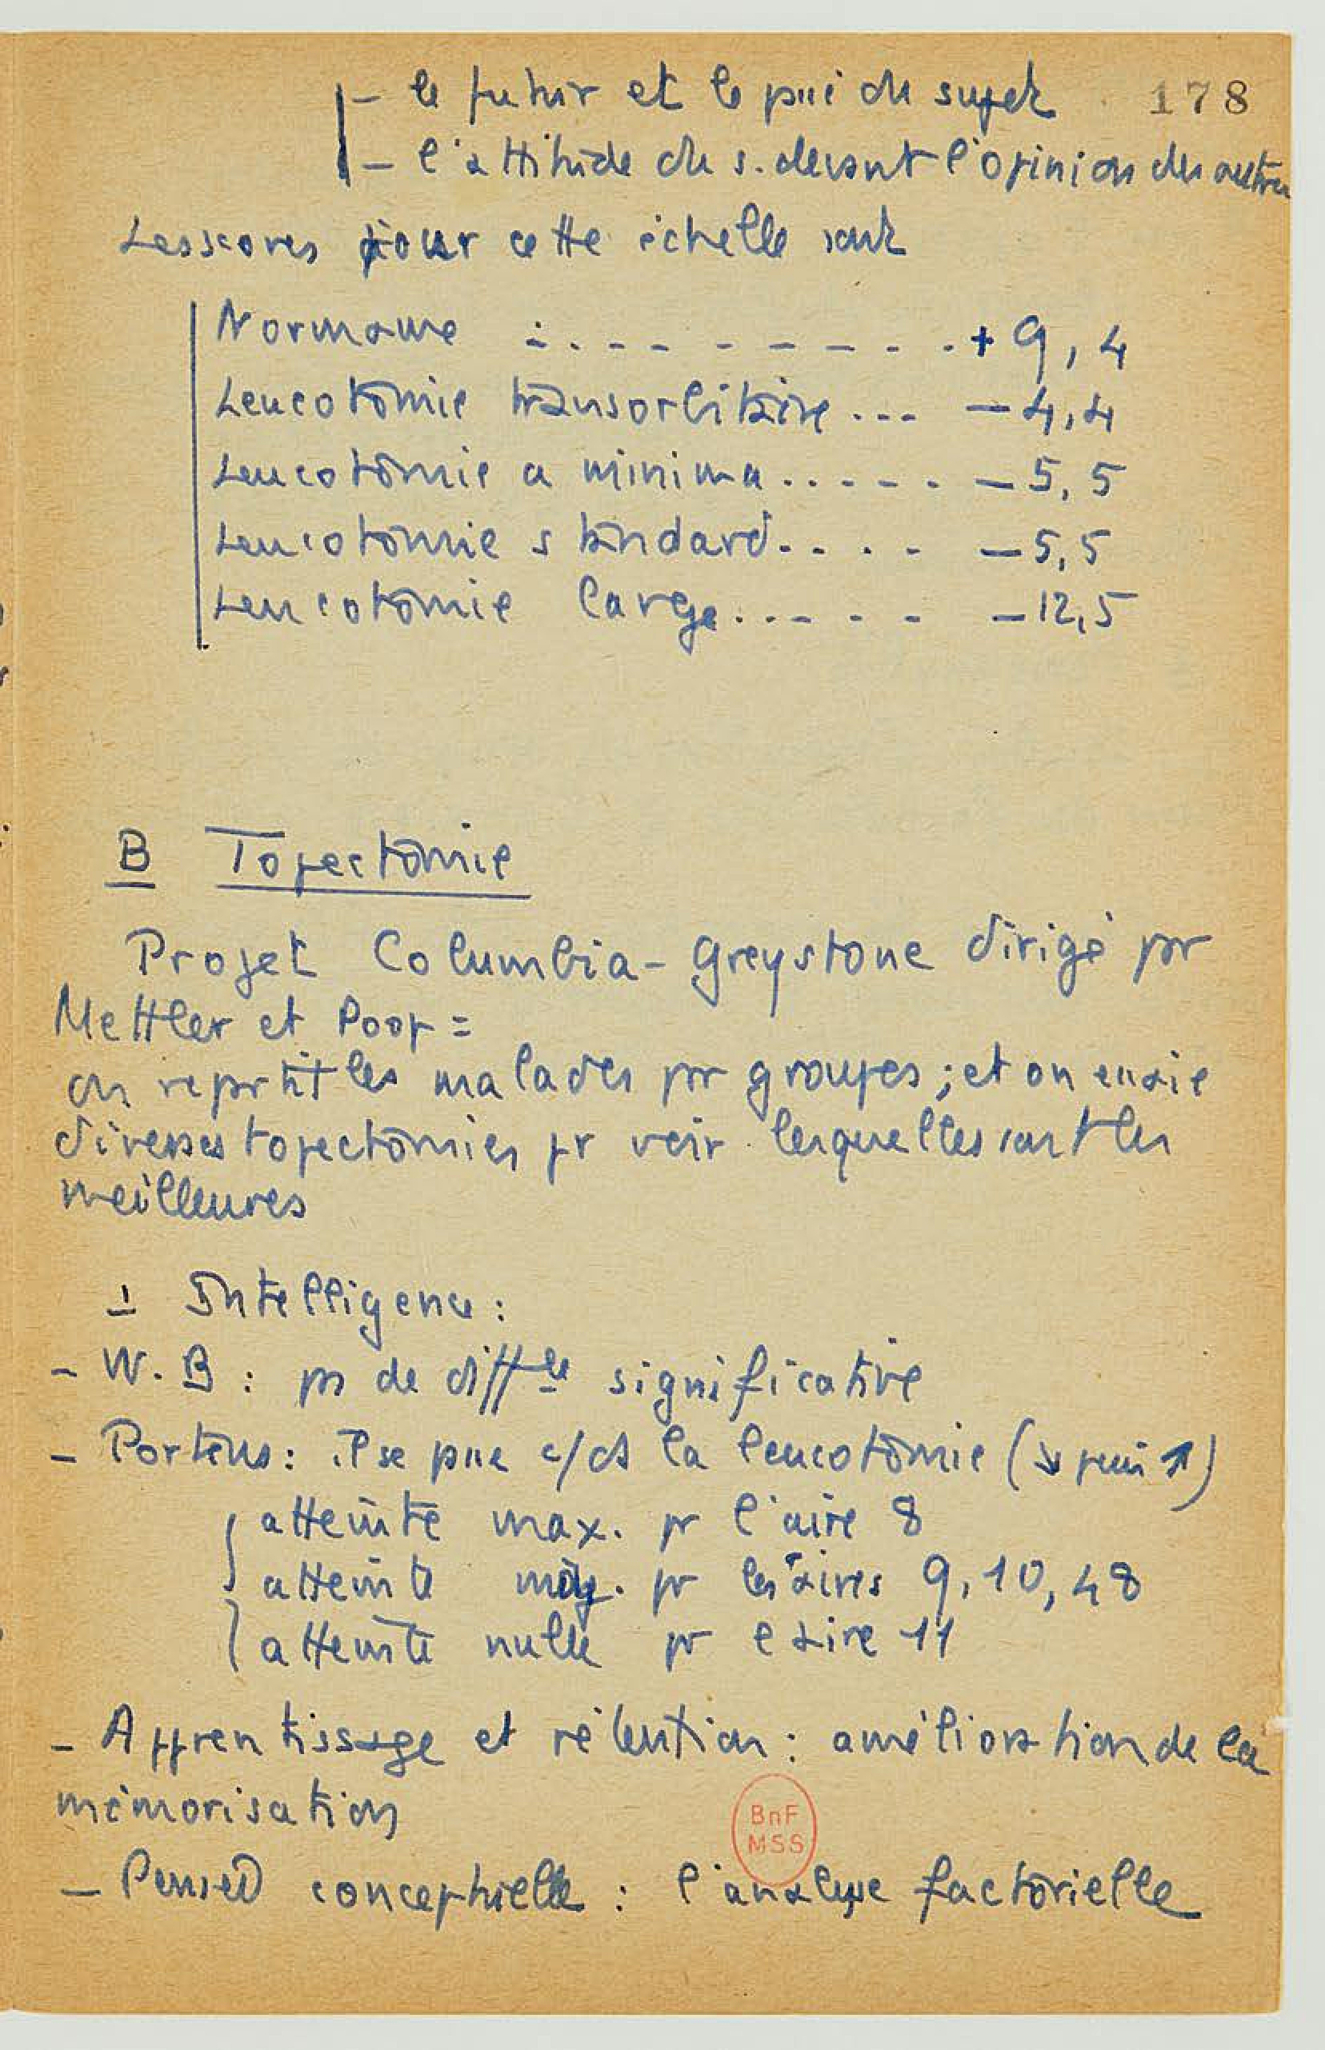 178
- le futur et le passé du sujet
- l'attitude du s. devant l'opinion des autres
Les scores pour cette échelle sont
Normaux : . . - - - - - - - . . + 9,4
Leucotomie transorbitaire ... - 4,4
Leucotomie a minima ..... - 5,5
Leucotomie standard .... - 5,5
Leucotomie large ..... - 12,5
B Topectomie
Projet Columbia-Greystone dirigé pr
Mettler et Poop =
on repartit les malades pr groupes ; et on essaie
diverses topectomies pr voir lesquelles sont les
meilleures
1 Intelligence :
- W. B : ps de diffce significative
- Porteus : il se passe c/ ds la leucotomie (↘ puis ↗)
atteinte max. pr l'aire 8
atteinte moy. pr les aires 9, 10, 48
atteinte nulle pr l'aire 11
- Apprentissage et rétention : amélioration de la
mémorisation
BnF
MSS
- Pensée conceptuelle : l'analyse factorielle